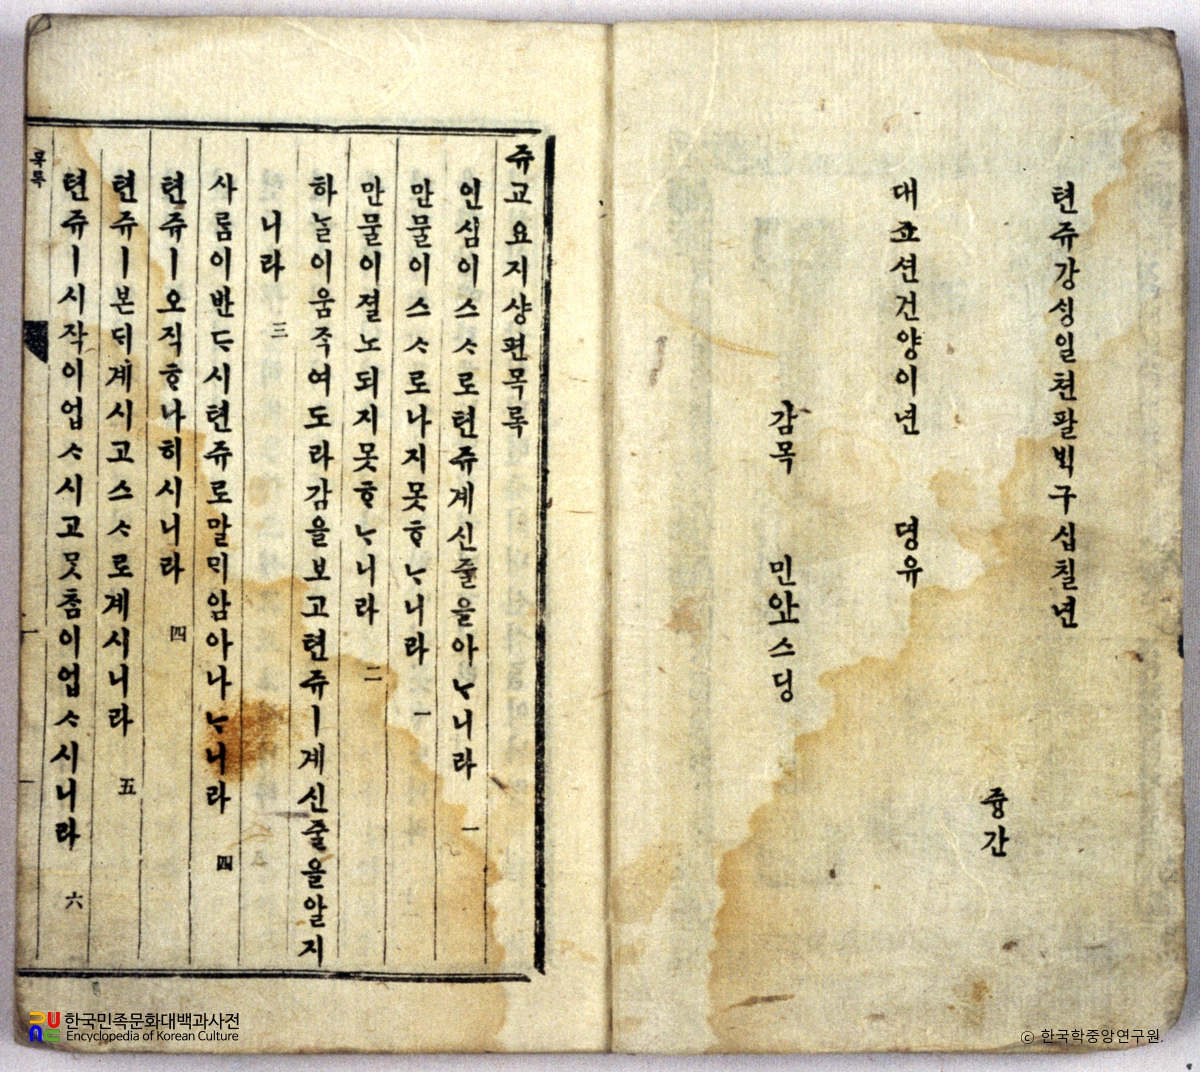 텬쥬강ᄉᆡᆼ일쳔팔ᄇᆡᆨ구십칠년
즁간
대죠션건양이년 뎡유
감목 민아오스딩
쥬교요지샹편목록
인심이스ᄉᆞ로텬쥬계신줄을아ᄂᆞ니라 一
만물이스ᄉᆞ로나지못ᄒᆞᄂᆞ니라 一
만물이졀노되지못ᄒᆞᄂᆞ니라 二
하ᄂᆞᆯ이움ᄌᆞᆨ여도라감을보고텬쥬ㅣ계신줄을알지
니라 三
사ᄅᆞᆷ이반ᄃᆞ시텬쥬로말ᄆᆡ암아나ᄂᆞ니라 四
텬쥬ㅣ오직ᄒᆞ나히시니라 四
텬쥬ㅣ본ᄃᆡ계시고스ᄉᆞ로계시니라 五
텬쥬ㅣ시작이업ᄉᆞ시고ᄆᆞᆺᄎᆞᆷ이업ᄉᆞ시니라 六
목록
一
한국민족문화대백과사전
Encyclopedia of Korean Culture
© 한국학중앙연구원.